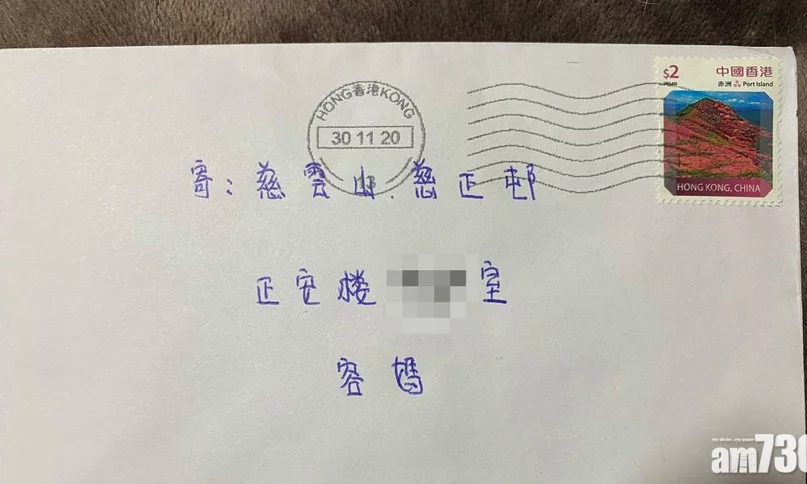 $2 中國香港
赤洲 Port Island
HONG KONG, CHINA
HONG 香港 KONG
30 11 20
寄：慈雲山．慈正邨
正安楼 室
容媽
am730